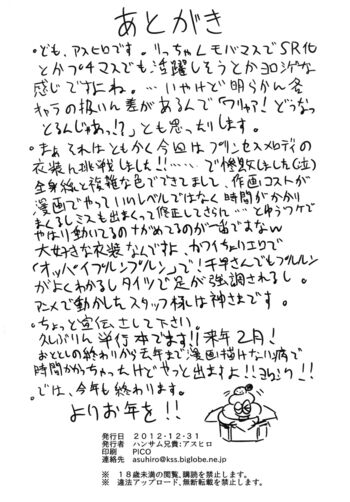 あとがき
°ども、アスヒロです。りっちゃんモバマスでSR化
とかプチマスでも活躍しそうとかヨロシゲな
感じですよね。…いやけど明らかん各
キャラの扱いん差があるんで「ワリャ!どうなっ
とるんじゃあっ!?」とも思ったりします。
°まぁ それはともかく今回はプリンセスメロディの
衣装ん挑戦しました!!……で惨敗しました(泣)
全身線と複雑な色でできてまして、作画コストが
漫画でやっていいレベルではなく時間がかかり
まくるしミスも出まくって修正してさらん…とゆうワケで
やはり動いてるのながめてるのが一番ですなw
大好きな衣装なんですよ、カワイイちょりエリで
「オッパイプルンプルン」で!千早さんでもプルルン
がよくわかるしタイツで足が強調されるし。
アニメで動かしたスタッフ様は神さまです。
°ちょっと宣伝さして下さい。
久しぶりん単行本でます!!来年2月!
おととしの終わりから去年まで漫画描けない病で
時間かかっちゃったけどやっと出ますよ!!ヨロシク!!
°では、今年も終わります。
よりお年を!!
発行日 2012・12・31
発行者 ハンサム兄貴:アスヒロ
印刷 PICO
連絡先 asuhiro@kss.biglobe.ne.jp
※ 18歳未満の閲覧、購読を禁止します。
※ 違法アップロード、無断転載を禁止します。